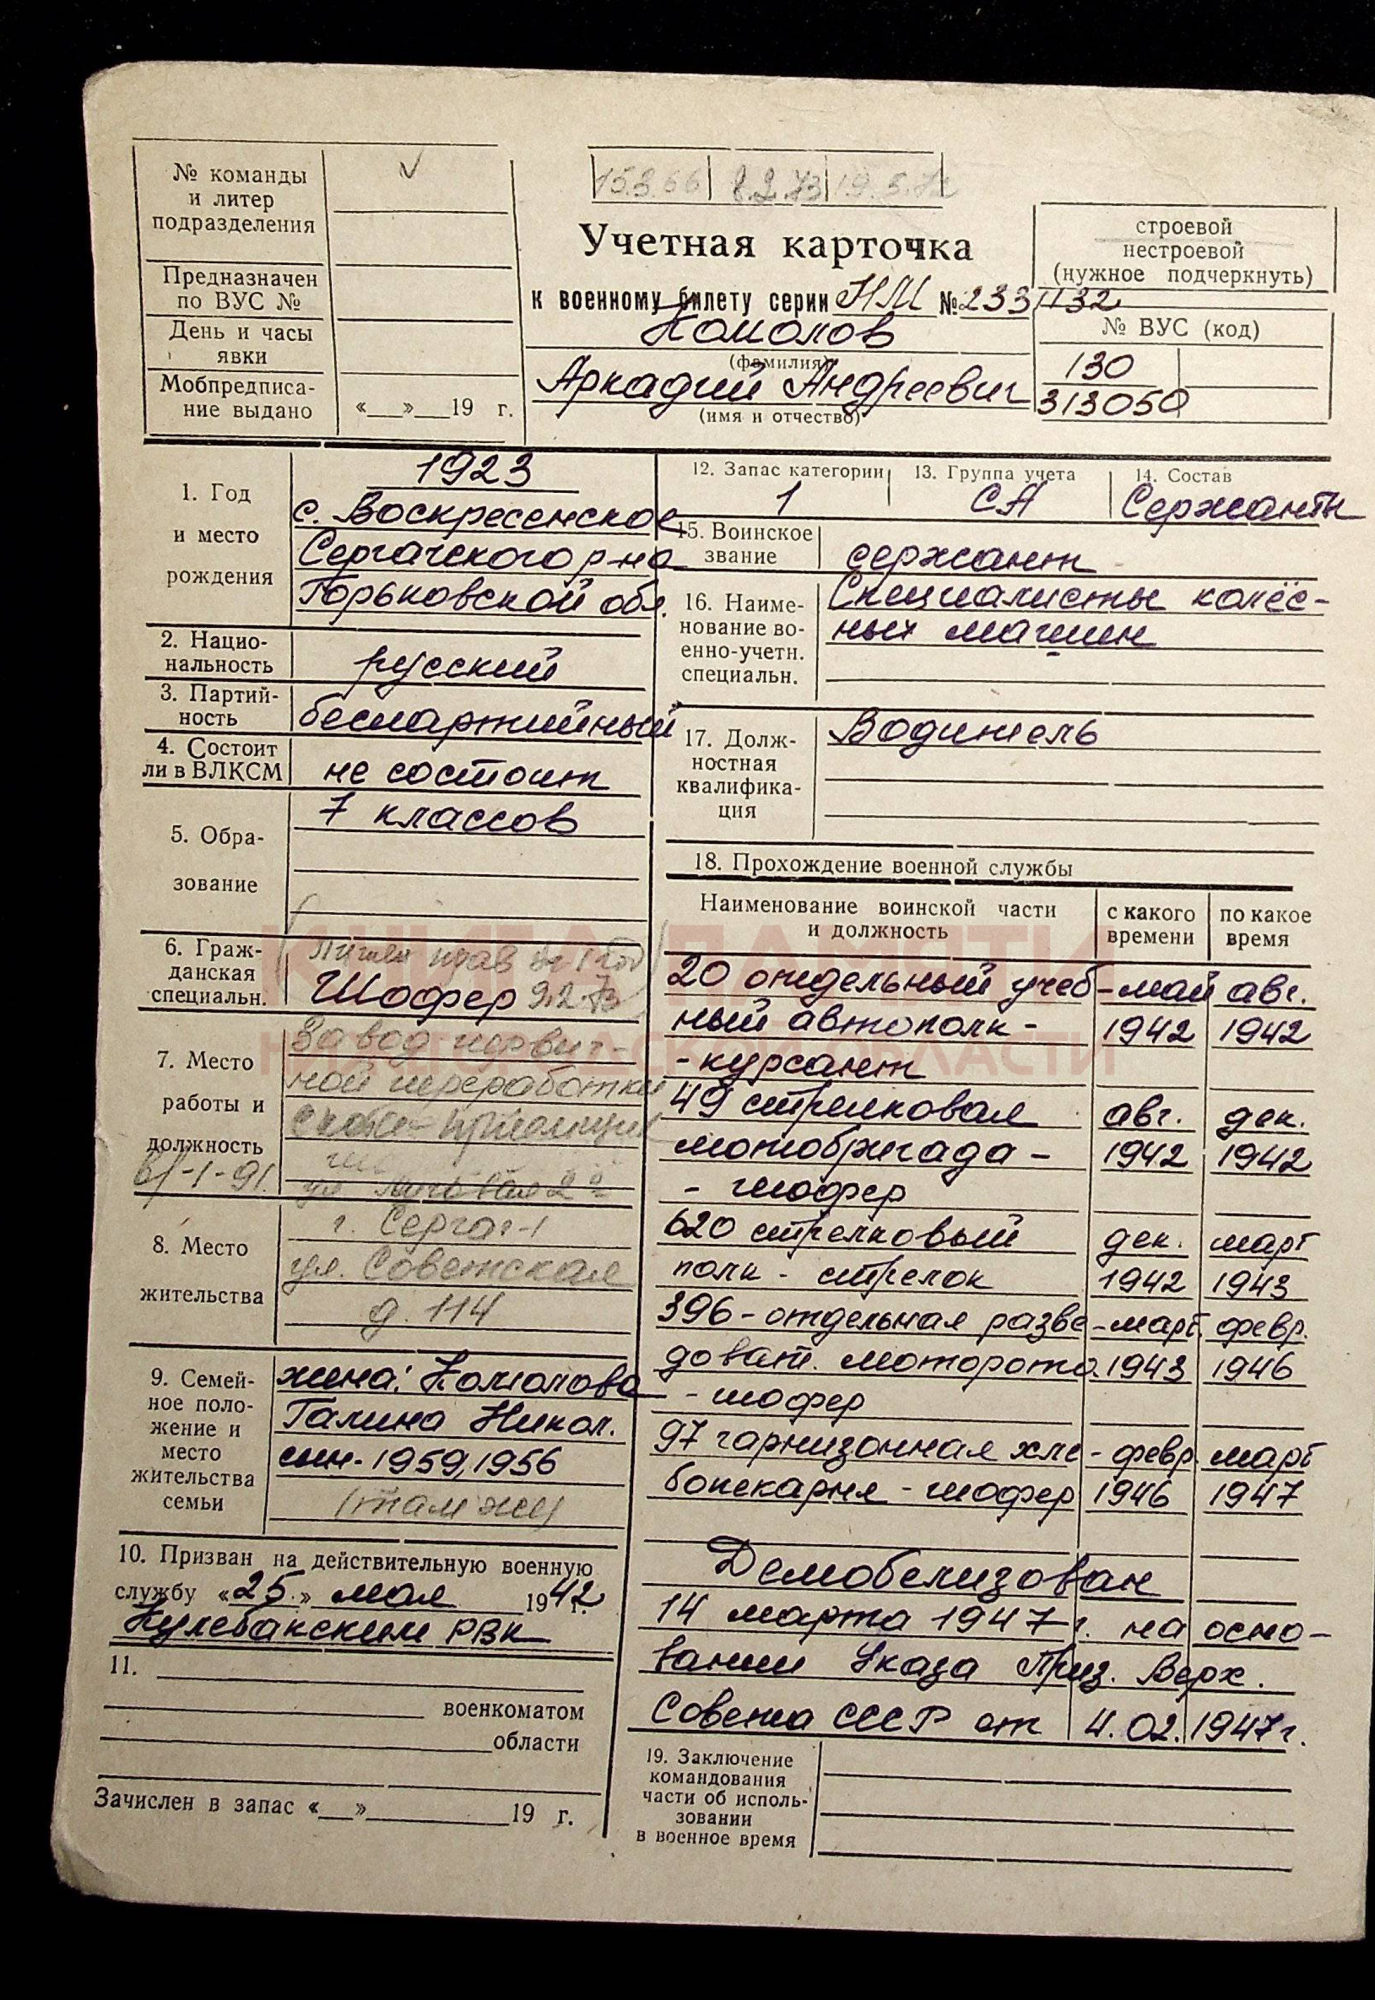 № команды
и литер
подразделения
Предназначен
по ВУС №
День и часы
явки
Мобпредписа-
ние выдано
«__»__19 г.
15.3.66 8.2.73
Учетная карточка
к военному билету серии НМ № 2331132
Комолов
(фамилия)
Аркадий Андреевич
(имя и отчество)
строевой
нестроевой
(нужное подчеркнуть)
№ ВУС (код)
130
313050
1. Год
и место
рождения
1923
с. Воскресенское
Сергачского р-на
Горьковской обл.
2. Нацио-
нальность
русский
3. Партий-
ность
беспартийный
4. Состоит
ли в ВЛКСМ
не состоит
5. Обра-
зование
7 классов
6. Граж-
данская
специальн.
Лишен прав на 1 год
Шофер 9.2.73
7. Место
работы и
должность
Завод первич-
ной переработки
скота
1-91.
8. Место
жительства
г. Сергач-1
ул. Советская
д. 114
9. Семей-
ное поло-
жение и
место
жительства
семьи
жена: Комолова
Галина Никол.
сын-1959, 1956
(там же)
10. Призван на действительную военную
службу «25» мая 1942 г.
Кулебакским РВК
11.
военкоматом
области
Зачислен в запас «__»____19 г.
12. Запас категории
1
13. Группа учета
СА
14. Состав
Сержанты
15. Воинское
звание
сержант
16. Наиме-
нование во-
енно-учетн.
специальн.
Специалисты колёс-
ных машин
17. Долж-
ностная
квалифика-
ция
Водитель
18. Прохождение военной службы
Наименование воинской части
и должность
с какого
времени
по какое
время
20 отдельный учеб- май авг.
ный автополк- 1942 1942
- курсант
49 стрелковая авг. дек.
мотобригада - 1942 1942
- шофер
620 стрелковый дек. март
полк - стрелок 1942 1943
396-отдельная разве- март. февр.
доват. моторота 1943 1946
- шофер
97 гарнизонная хле- февр. март
бопекарня - шофер 1946 1947
Демобелизован
14 марта 1947 г. на осно-
вании Указа През. Верх.
Совета СССР от 4.02.1947г.
19. Заключение
командования
части об исполь-
зовании
в военное время
КНИГА ПАМЯТИ
НИЖЕГОРОДСКОЙ ОБЛАСТИ